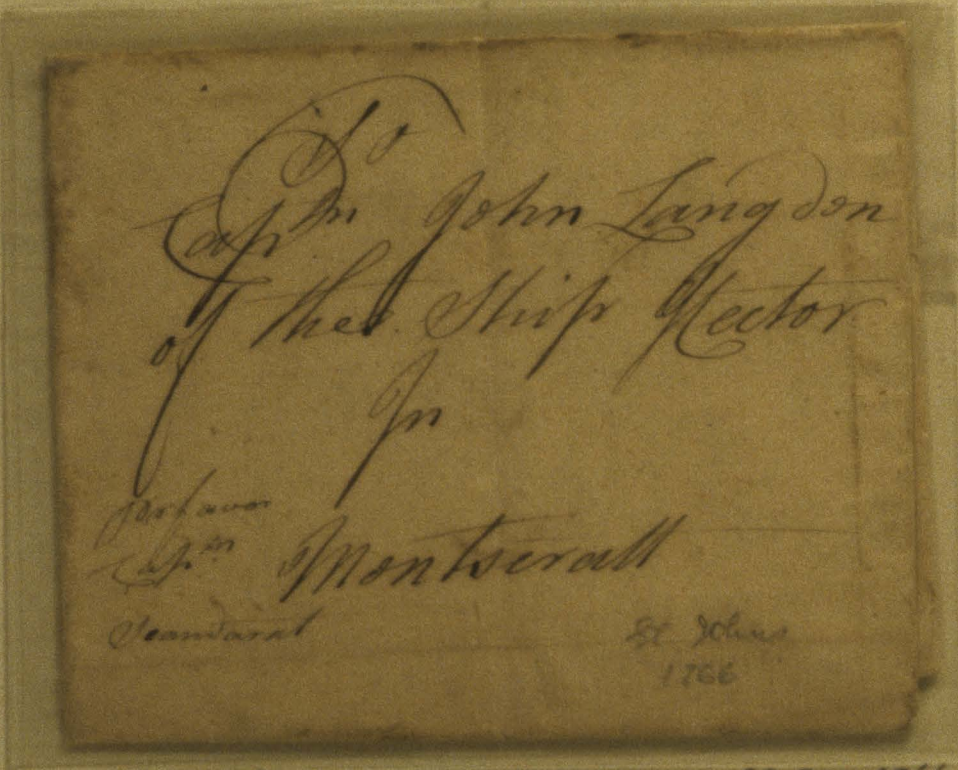 To
Capᵗⁿ John Langdon
of the Ship Hector
In
Montseratt
per favor
Capᵗⁿ
St Johns
1766